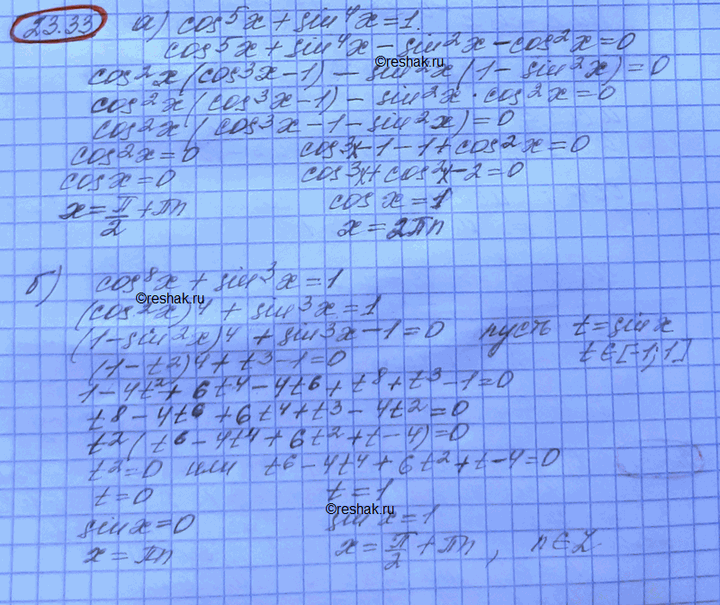 23.33 а) cos⁵x + sin⁴x = 1
cos⁵x + sin⁴x - sin²x - cos²x = 0
©reshak.ru
cos²x (cos³x - 1) - sin²x (1 - sin²x) = 0
cos²x (cos³x - 1) - sin²x · cos²x = 0
cos²x (cos³x - 1 - sin²x) = 0
cos²x = 0 cos³x - 1 - 1 + cos²x = 0
cosx = 0 cos³x + cos²x - 2 = 0
x = π/2 + πn cos x = 1
x = 2πn
б) cos⁸x + sin³x = 1
©reshak.ru
(cos²x)⁴ + sin³x = 1
(1 - sin²x)⁴ + sin³x - 1 = 0 пусть t = sinx
(1 - t²)⁴ + t³ - 1 = 0 t ∈ [-1; 1]
1 - 4t² + 6t⁴ - 4t⁶ + t⁸ + t³ - 1 = 0
t⁸ - 4t⁶ + 6t⁴ + t³ - 4t² = 0
t² (t⁶ - 4t⁴ + 6t² + t - 4) = 0
t² = 0 или t⁶ - 4t⁴ + 6t² + t - 4 = 0
t = 0 t = 1
©reshak.ru
sin x = 0 sin x = 1
x = πn x = π/2 + πn, n ∈ Z